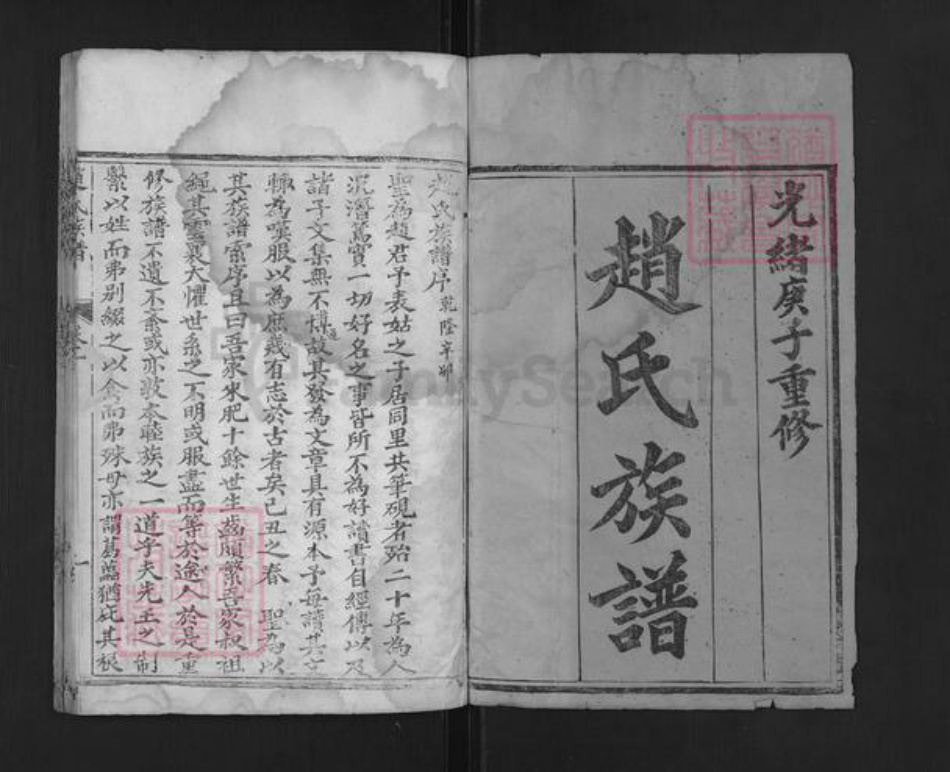 光緒庚子重修
趙氏族譜
趙氏族譜序 乾隆辛卯
聖為趙君予表姑之子居同里共筆硯者殆二十年為人
沉潛篤實一切好名之事皆所不為好讀書自經傳以及
諸子文集無不博故其發為文章具有源本予每讀其文
輒為嘆服以為庶幾有志於古者矣己丑之春 聖為以
其族譜索序且曰吾家來肥十餘世生齒頗繁吾家叔祖
繩其雲襄大懼世系之不明或服盡而等於途人於是重
修族譜不遺不紊或亦敦本睦族之一道乎夫先王之制
繫以姓而弗别綴之以食而弗殊毋亦謂葛藟猶庇其根
趙氏族譜
一
FamilySearch